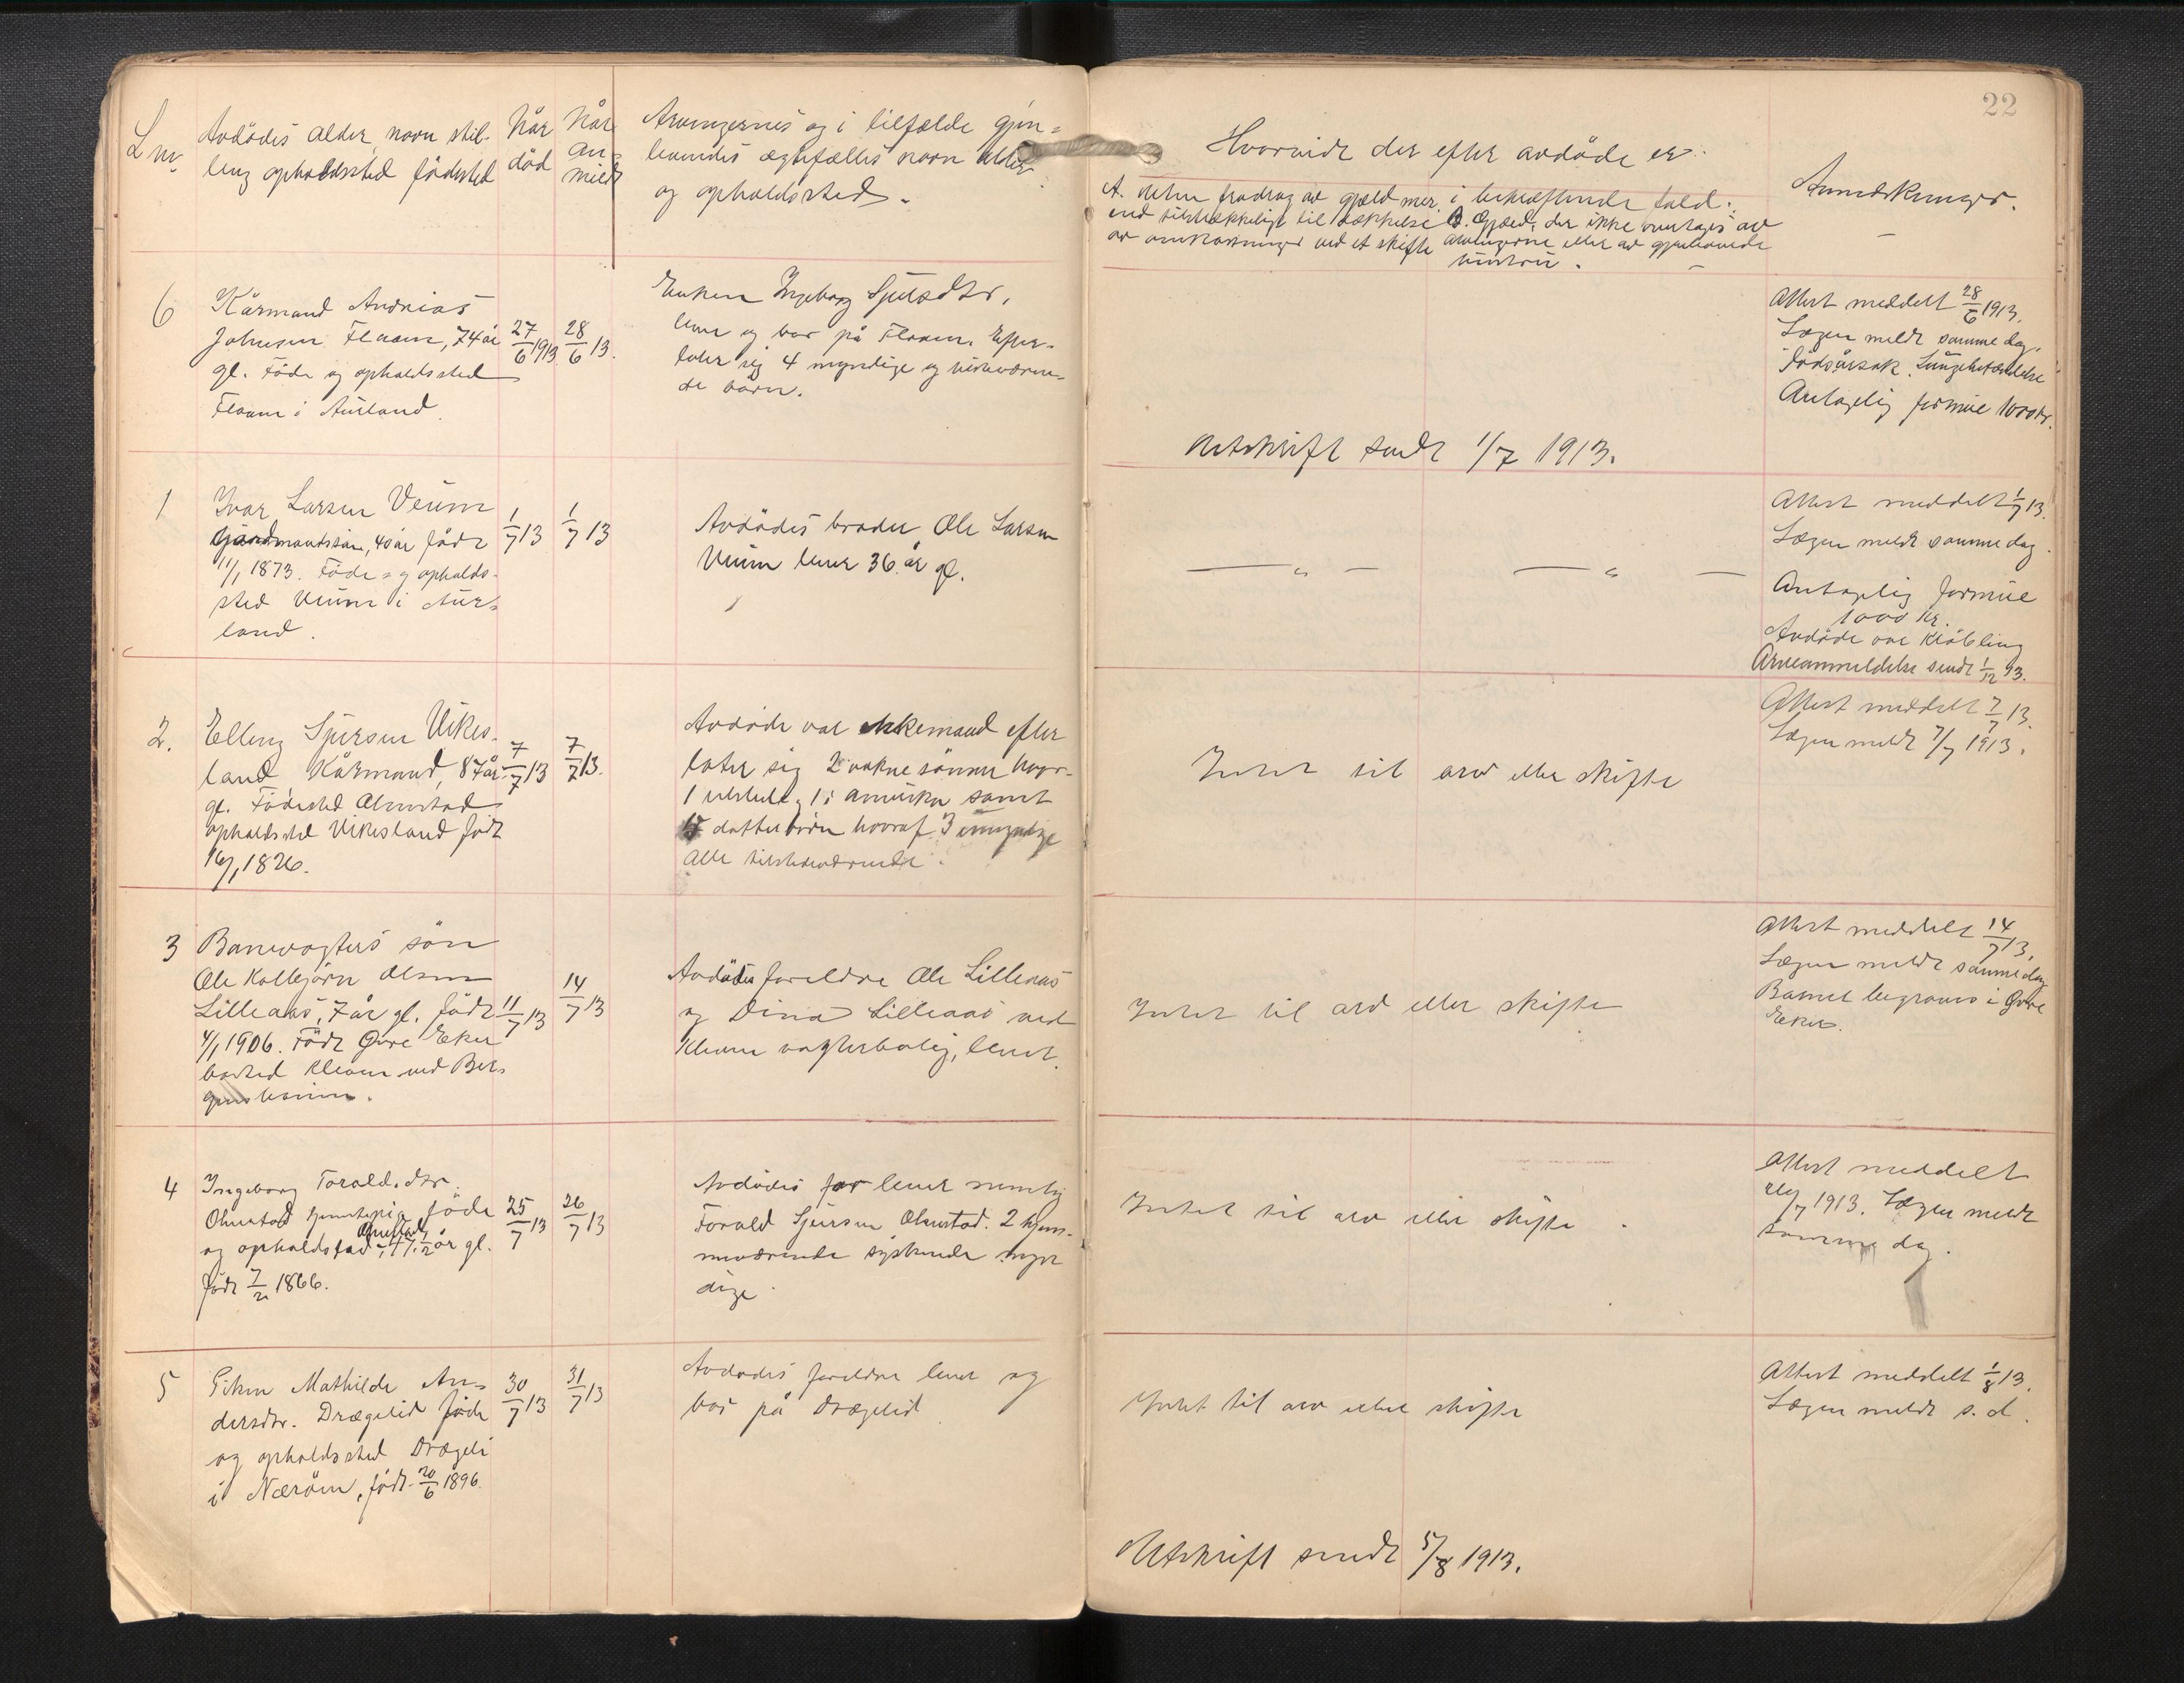 22
L nr.
Avdødes alder, navn stil-
ling opholdssted fødested
Når
død
Når
an-
meldt
Arvingernes og i tilfælde gjen-
levendes ægtefælles navn alder
og opholdssted.
Hvorvidt der efter avdøde er:
A. uten fradrag av gjæld mer
end tilstrækkelig til dækkelse
av omkostninger ved et skifte
i bekræftende fald:
B. Gjæld, der ikke overtages av
arvingerne eller av gjenlevende
Anmerkninger.
6
Kårmand Andreas
Johnsen Flaam, 74 år
gl. Føde og opholdssted
Flaam i Aurland
27/6 1913
28/6 13.
Enken Ingeborg Sjursdtr.
lever og bor på Flaam. Efter-
later sig 4 myndige og
de børn.
Attest meddelt 28/6 1913.
Lægen meldt samme dag.
Dødsårsak Lungebetændelse
Antagelig formue 1000 kr.
Utskrift sendt 1/7 1913.
1
Ivar Larsen Veum
Gårdmandssøn, 40 år født
11/1 1873. Føde og opholds-
sted Veum i Aur-
land.
1/7 13
1/7 13
Avdødes broder Ole Larsen
Veum lever 36 år gl.
— „ — — „ —
Attest meddelt 1/7 13.
Lægen meldt samme dag.
Antagelig formue
1000 kr.
Avdøde var krøbling
Arveanmeldelse sendt 1/12 13.
2.
Elling Sjursen Vikes-
land Kårmand, 87 år
gl. Fødested Olmstad
opholdssted Vikesland født
16/1 1826.
7/7 13
7/7 13.
Avdøde var enkemand efter
later sig 2 vokne sønner hvor-
1 tilstede, 1 i Amerika samt
datterbørn hvoraf 3 umyndige
alle tilstedeværende.
Intet til arv eller skifte
Attest meddelt 7/7 13.
Lægen meldt 7/7 1913.
3
Banevogters søn
Ole Kolbjørn Olsen
Lilleaas, 7 år gl. født
4/1 1906. Født Øvre Eker
bosted Kleven ved Ber-
gensbanen.
11/7 13
14/7 13
Avdødes foreldre Ole Lilleaas
og Dina Lilleaas ved
Kleven vogterbolig, lever.
Intet til arv eller skifte
Attest meddelt 14/7 13,
Lægen meldt samme dag
Barnet begraves i Øvre
Eker.
4
Ingeborg Toraldsdtr.
Olmstad tjenstepige føde
og opholdsstad Olmstad, 47 1/2 år gl.
født 7/2 1866.
25/7 13
26/7 13
Avdødes far lever nemlig
Torald Sjursen Olmstad. 2 hjem-
meværende søskende myn
dige
Intet til arv eller skifte
Attest meddelt
26/7 1913. Lægen meldt
samme dag.
5
Piken Mathilde An-
dersdtr. Drægelid føde
og opholdssted Drægeli
i Nærøen, født 20/6 1896.
30/7 13
31/7 13
Avdødes foreldre lever og
bor på Drægelid
Intet til arv eller skifte
Attest meddelt 1/8 13.
Lægen meldt s. d.
Utskrift sendt 5/8 1913.